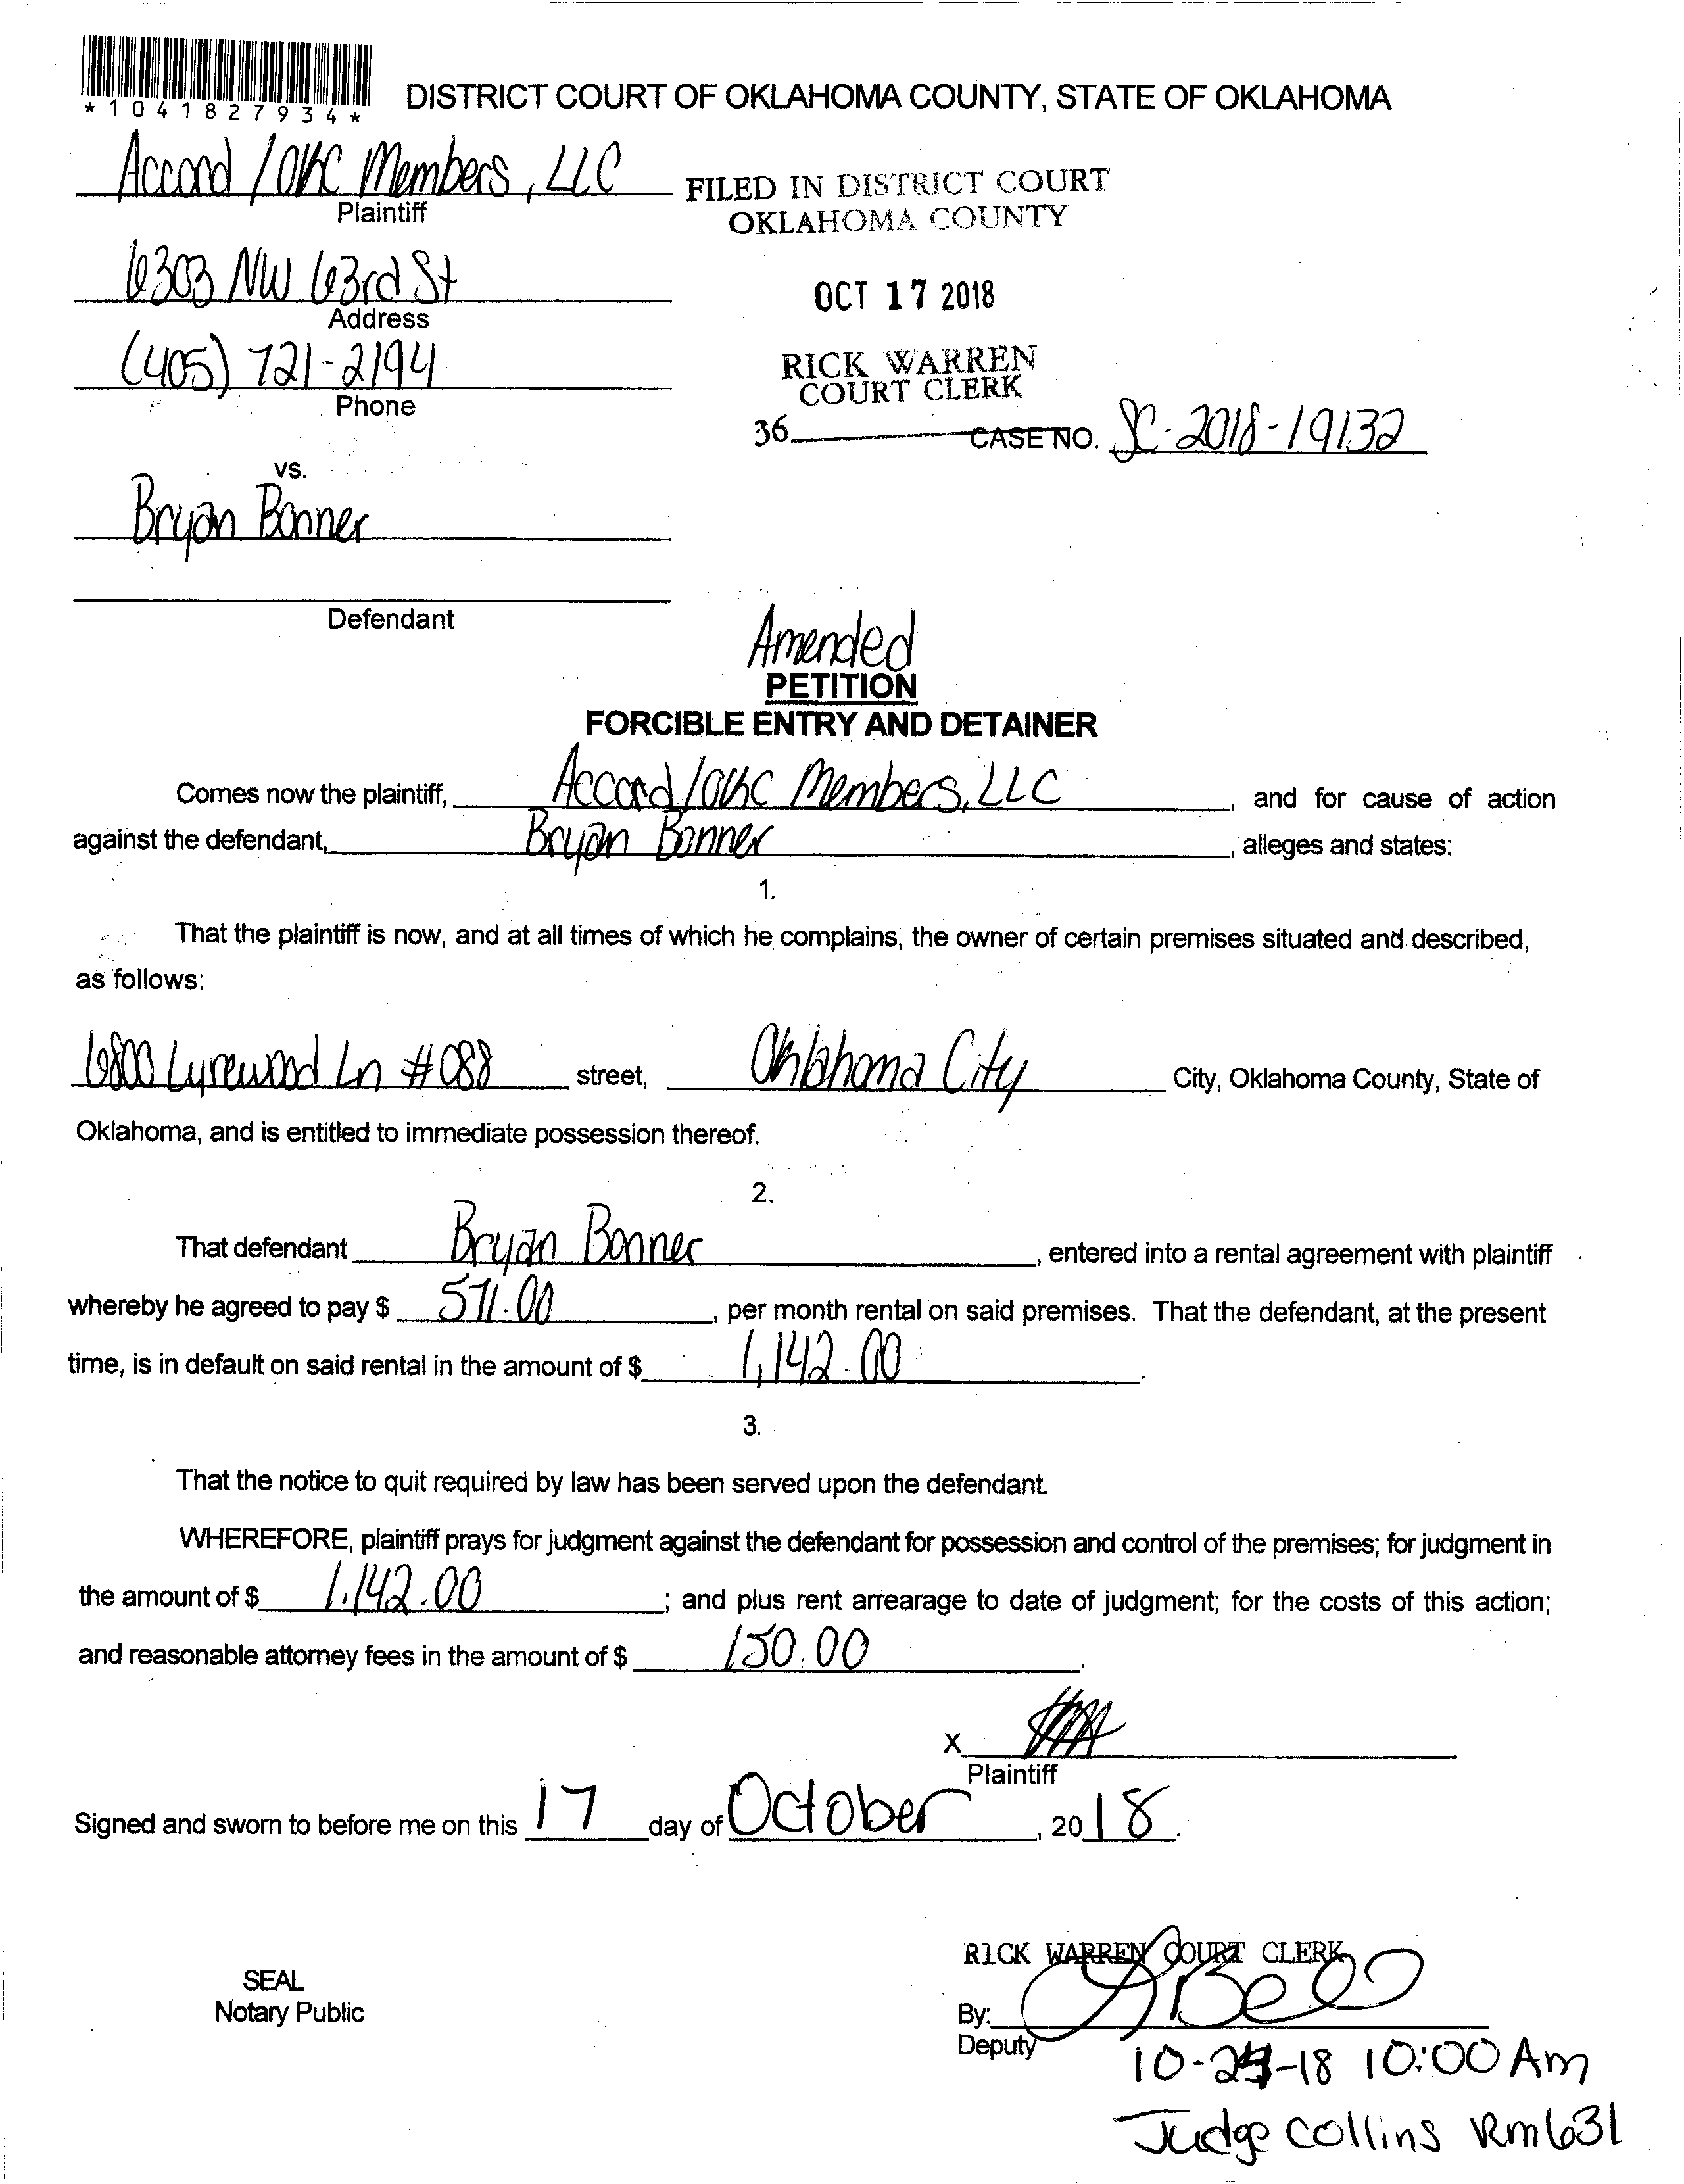 *1041827934*
DISTRICT COURT OF OKLAHOMA COUNTY, STATE OF OKLAHOMA
Accord / OKC Members, LLC
Plaintiff
FILED IN DISTRICT COURT
OKLAHOMA COUNTY
6303 NW 63rd St
Address
OCT 17 2018
(405) 721-2194
Phone
RICK WARREN
COURT CLERK
36 CASE NO. SC-2018-19132
vs.
Bryan Bonner
Defendant
Amended
PETITION
FORCIBLE ENTRY AND DETAINER
Comes now the plaintiff, Accord/OKC Members, LLC, and for cause of action
against the defendant, Bryan Bonner, alleges and states:
1.
That the plaintiff is now, and at all times of which he complains, the owner of certain premises situated and described,
as follows:
6800 Lyrewood Ln #088 street, Oklahoma City City, Oklahoma County, State of
Oklahoma, and is entitled to immediate possession thereof.
2.
That defendant Bryan Bonner, entered into a rental agreement with plaintiff
whereby he agreed to pay $ 571.00, per month rental on said premises. That the defendant, at the present
time, is in default on said rental in the amount of $ 1,142.00.
3.
That the notice to quit required by law has been served upon the defendant.
WHEREFORE, plaintiff prays for judgment against the defendant for possession and control of the premises; for judgment in
the amount of $ 1,142.00; and plus rent arrearage to date of judgment; for the costs of this action;
and reasonable attorney fees in the amount of $ 150.00.
X
Plaintiff
Signed and sworn to before me on this 17 day of October, 2018.
RICK WARREN COURT CLERK
SEAL
Notary Public
By: Bell
Deputy
10:00 Am
Judge Collins Rm 631